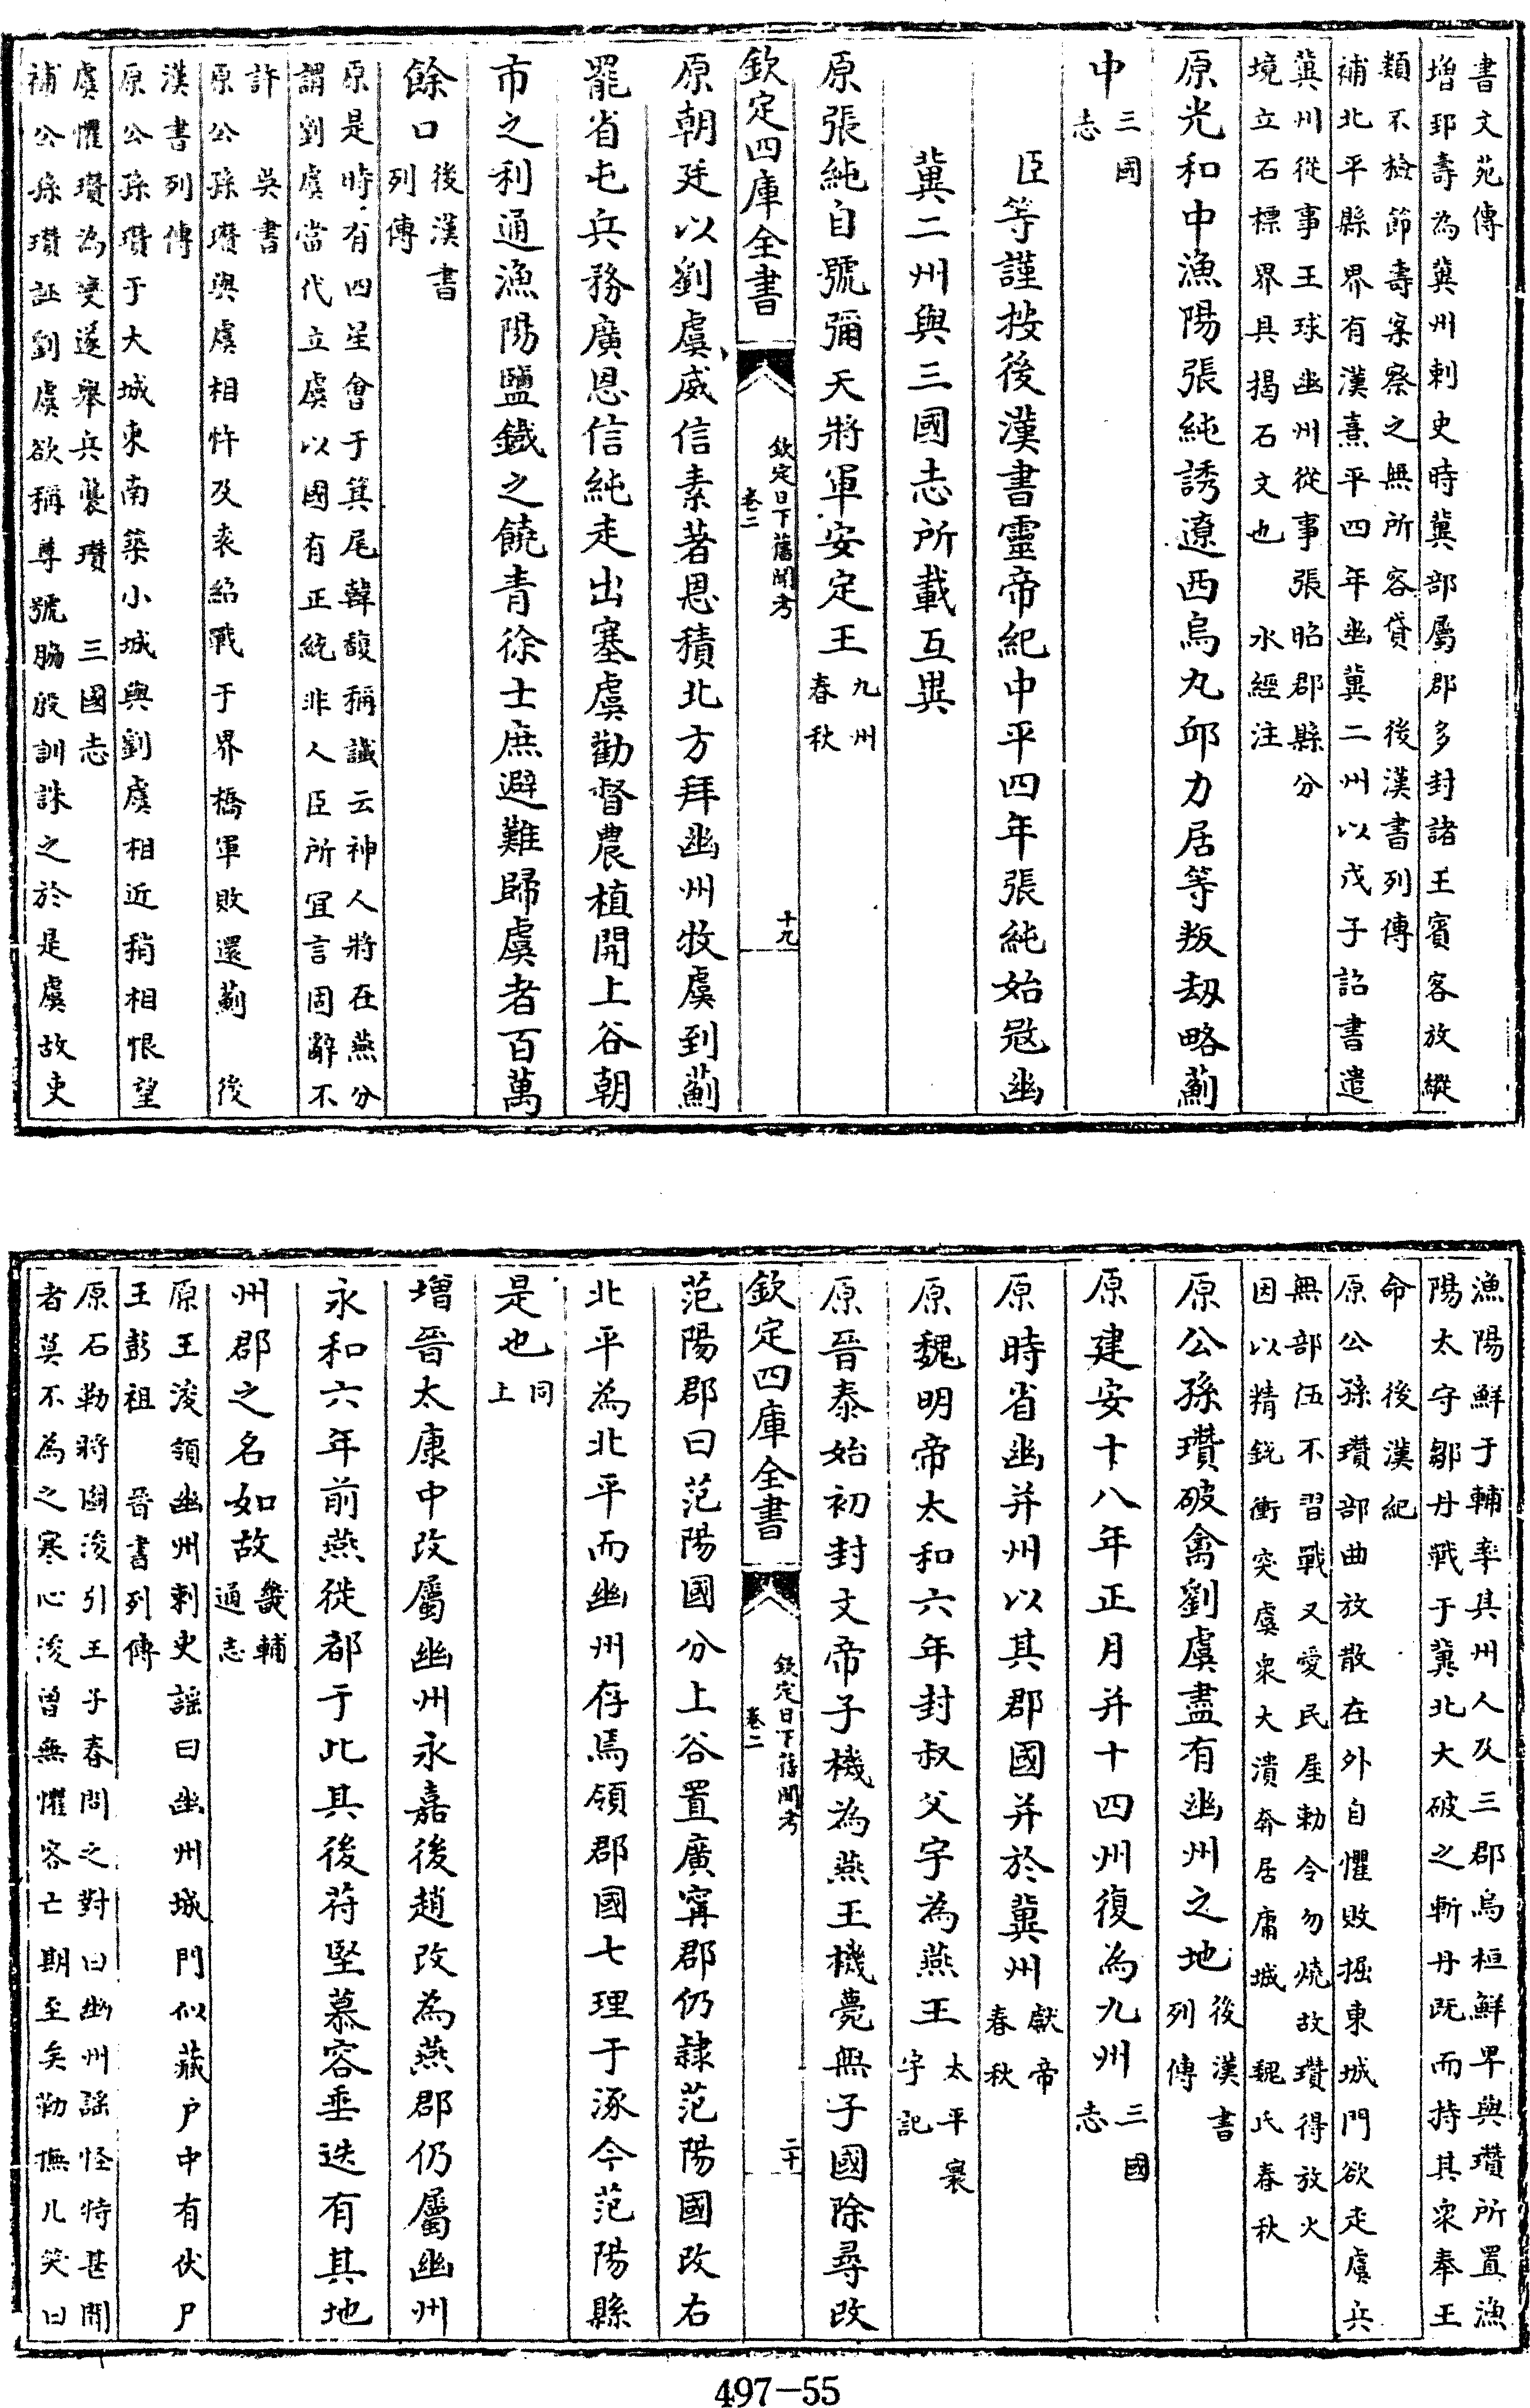 書文苑傳
増郅壽為冀州刺史時冀部屬郡多封諸王賓客放縱
類不檢節壽案察之無所容貸　後漢書列傳
補北平縣界有漢熹平四年幽冀二州以戊子詔書遣
冀州從事王球幽州從事張昭郡縣分
境立石標界具揭石文也　水經注
原光和中漁陽張純誘遼西烏丸邱力居等叛刼略薊
中三國志
臣等謹按後漢書靈帝紀中平四年張純始冦幽
冀二州與三國志所載互異
原張純自號彌天將軍安定王九州春秋
欽定四庫全書
欽定日下舊聞考
卷二
十九
原朝廷以劉虞威信素著恩積北方拜幽州牧虞到薊
罷省屯兵務廣恩信純走出塞虞勸督農植開上谷朝
市之利通漁陽鹽鐵之饒青徐士庶避難歸虞者百萬
餘口後漢書列傳
原是時有四星會于箕尾韓馥稱讖云神人將在燕分
謂劉虞當代立虞以國有正統非人臣所宜言固辭不
許　吳書
原公孫瓚與虞相忤及袁紹戰于界橋軍敗還薊　後
漢書列傳
原公孫瓚于大城東南築小城與劉虞相近稍相恨望
虞懼瓚為變遂舉兵襲瓚　三國志
補公孫瓚誣劉虞欲稱尊號脇殷訓誅之於是虞故吏
漁陽鮮于輔率其州人及三郡烏桓鮮卑與瓚所置漁
陽太守鄒丹戰于冀北大破之斬丹既而持其衆奉王
命　後漢紀
原公孫瓚部曲放散在外自懼敗掘東城門欲走虞兵
無部伍不習戰又愛民屋勅令勿燒故瓚得放火
因以精銳衝突虞衆大潰奔居庸城　魏氏春秋
原公孫瓚破禽劉虞盡有幽州之地後漢書列傳
原建安十八年正月并十四州復為九州三國志
原時省幽并州以其郡國并於冀州獻帝春秋
原魏明帝太和六年封叔父宇為燕王太平寰宇記
原晉泰始初封文帝子機為燕王機薨無子國除尋改
欽定四庫全書
欽定日下舊聞考
卷二
二十
范陽郡曰范陽國分上谷置廣寗郡仍隸范陽國改右
北平為北平而幽州存焉領郡國七理于涿今范陽縣
是也同上
増晉太康中改屬幽州永嘉後趙改為燕郡仍屬幽州
永和六年前燕徙都于此其後苻堅慕容垂迭有其地
州郡之名如故畿輔通志
原王浚領幽州刺史謡曰幽州城門似藏户中有伏尸
王彭祖　晉書列傳
原石勒將圖浚引王子春問之對曰幽州謡怪特甚聞
者莫不為之寒心浚曽無懼容亡期至矣勒撫几笑曰
497-55